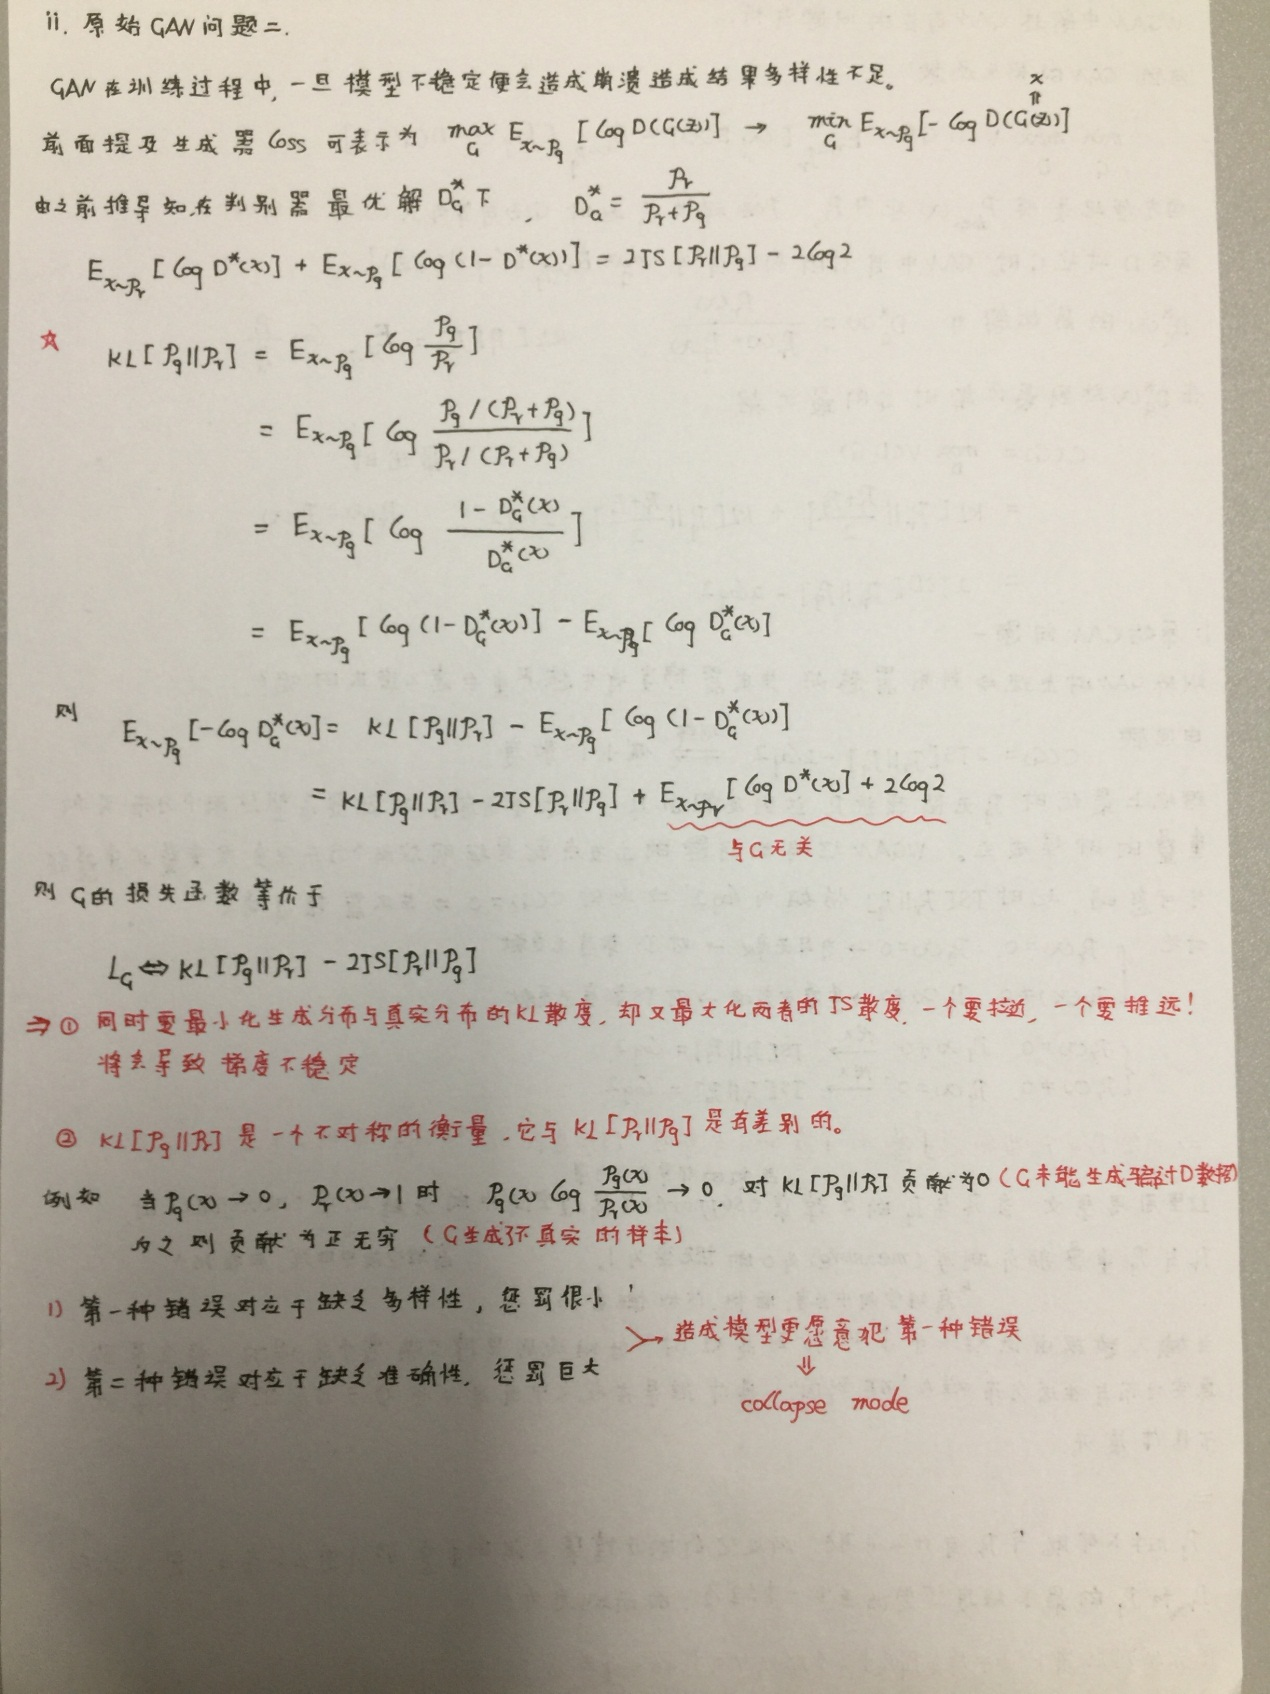 ii. 原始GAN问题二.
GAN在训练过程中, 一旦模型不稳定便会造成崩溃造成结果多样性不足。
x
⇑
前面提及生成器Loss可表示为 max_G E_{x~Pg} [log D(G(z))] → min_G E_{x~Pg} [-log D(G(z))]
由之前推导知,在判别器最优解 D_G^* 下, D_G^* = Pr / (Pr+Pg)
E_{x~Pr} [log D^*(x)] + E_{x~Pg} [log (1-D^*(x))] = 2JS[Pr||Pg] - 2log2
☆ KL[Pg||Pr] = E_{x~Pg} [log Pg/Pr]
= E_{x~Pg} [log (Pg/(Pr+Pg)) / (Pr/(Pr+Pg))]
= E_{x~Pg} [log (1-D_G^*(x)) / D_G^*(x)]
= E_{x~Pg} [log (1-D_G^*(x))] - E_{x~Pg} [log D_G^*(x)]
则 E_{x~Pg} [-log D_G^*(x)] = KL[Pg||Pr] - E_{x~Pg} [log (1-D_G^*(x))]
= KL[Pg||Pr] - 2JS[Pr||Pg] + E_{x~Pr} [log D^*(x)] + 2log2
与G无关
则 G的损失函数等价于
L_G ⇔ KL[Pg||Pr] - 2JS[Pr||Pg]
⇒ ① 同时要最小化生成分布与真实分布的KL散度, 却又最大化两者的JS散度, 一个要拉近, 一个要推远!
将会导致梯度不稳定
② KL[Pg||Pr] 是一个不对称的衡量, 它与 KL[Pr||Pg] 是有差别的。
例如 当Pg(x)→0, Pr(x)→1时 Pg(x) log Pg(x)/Pr(x) → 0, 对KL[Pg||Pr]贡献为0 (G未能生成骗过D数据)
反之则贡献为正无穷 (G生成了不真实的样本)
1) 第一种错误对应于缺乏多样性, 惩罚很小
造成模型更愿意犯第一种错误
2) 第二种错误对应于缺乏准确性, 惩罚巨大
⇓
collapse mode